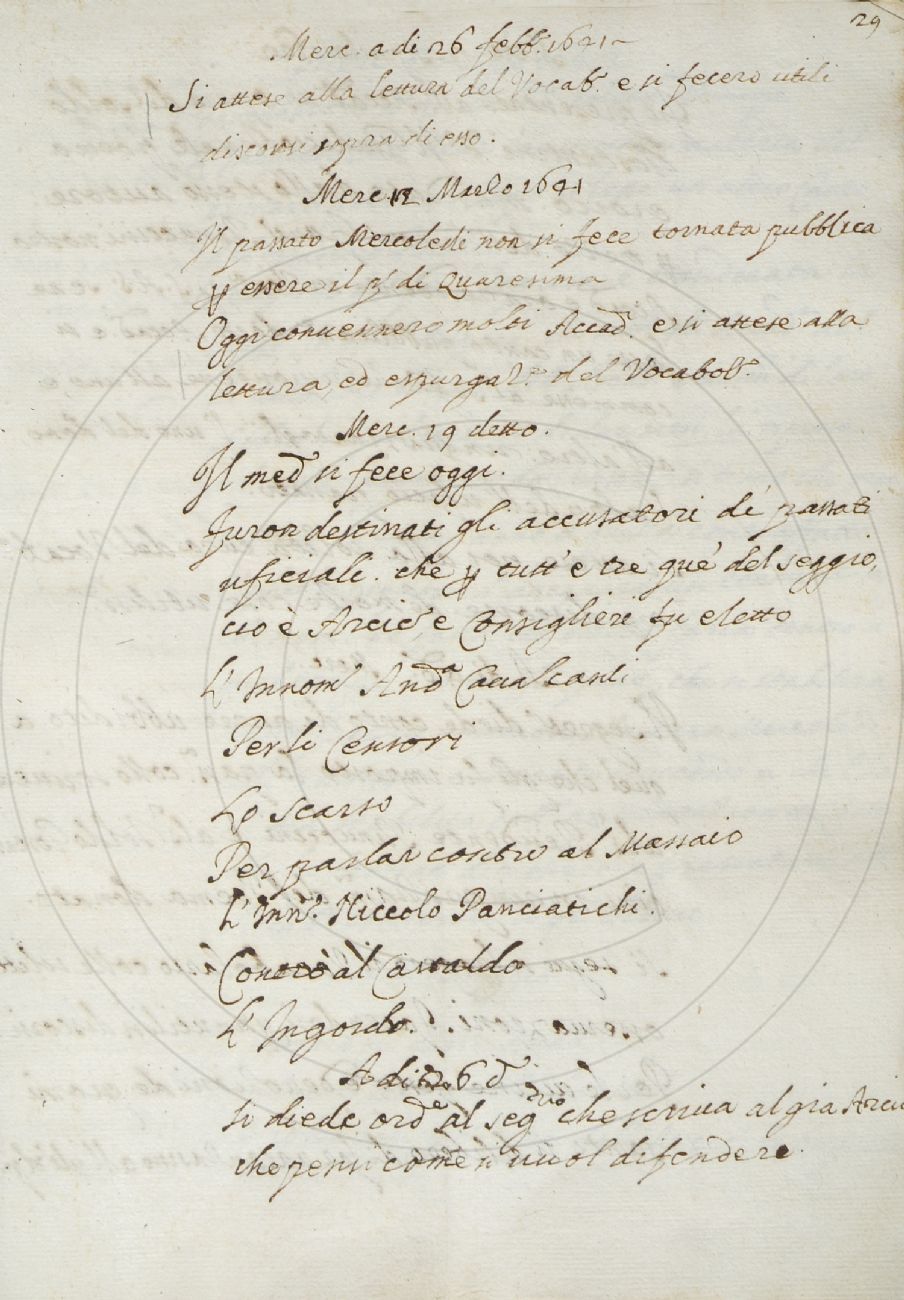 29
Merc. a di 26 febb.o 1641
Si attese alla lettura del Vocab.o e si fecero utili
discorsi sopra di esso.
Merc. 12 Marzo 1641
Il passato Mercoledi non si fece tornata pubblica
ꝑ essere il p.o di Quaresima
Oggi convennero molti Accad. e si attese alla
lettura, ed espurgaz.e del Vocabol.o
Merc. 19 detto.
Il med.o si fece oggi.
Furon destinati gli accusatori de' passati
uficiali. che ꝑ tutt' e tre que' del seggio,
cio è Arcic.o e Consiglieri fu eletto
L' Innom.o And.a Cavalcanti
Per li Censori
Lo Scarso
Per parlar contro al Massaio
L' Inn.o Niccolo Panciatichi.
Contro al Castaldo
L' Ingordo.
A di 26 d.o
Si diede ord.e al seg.rio che scriva al gia Arci
che pensi come si vuol difendere.